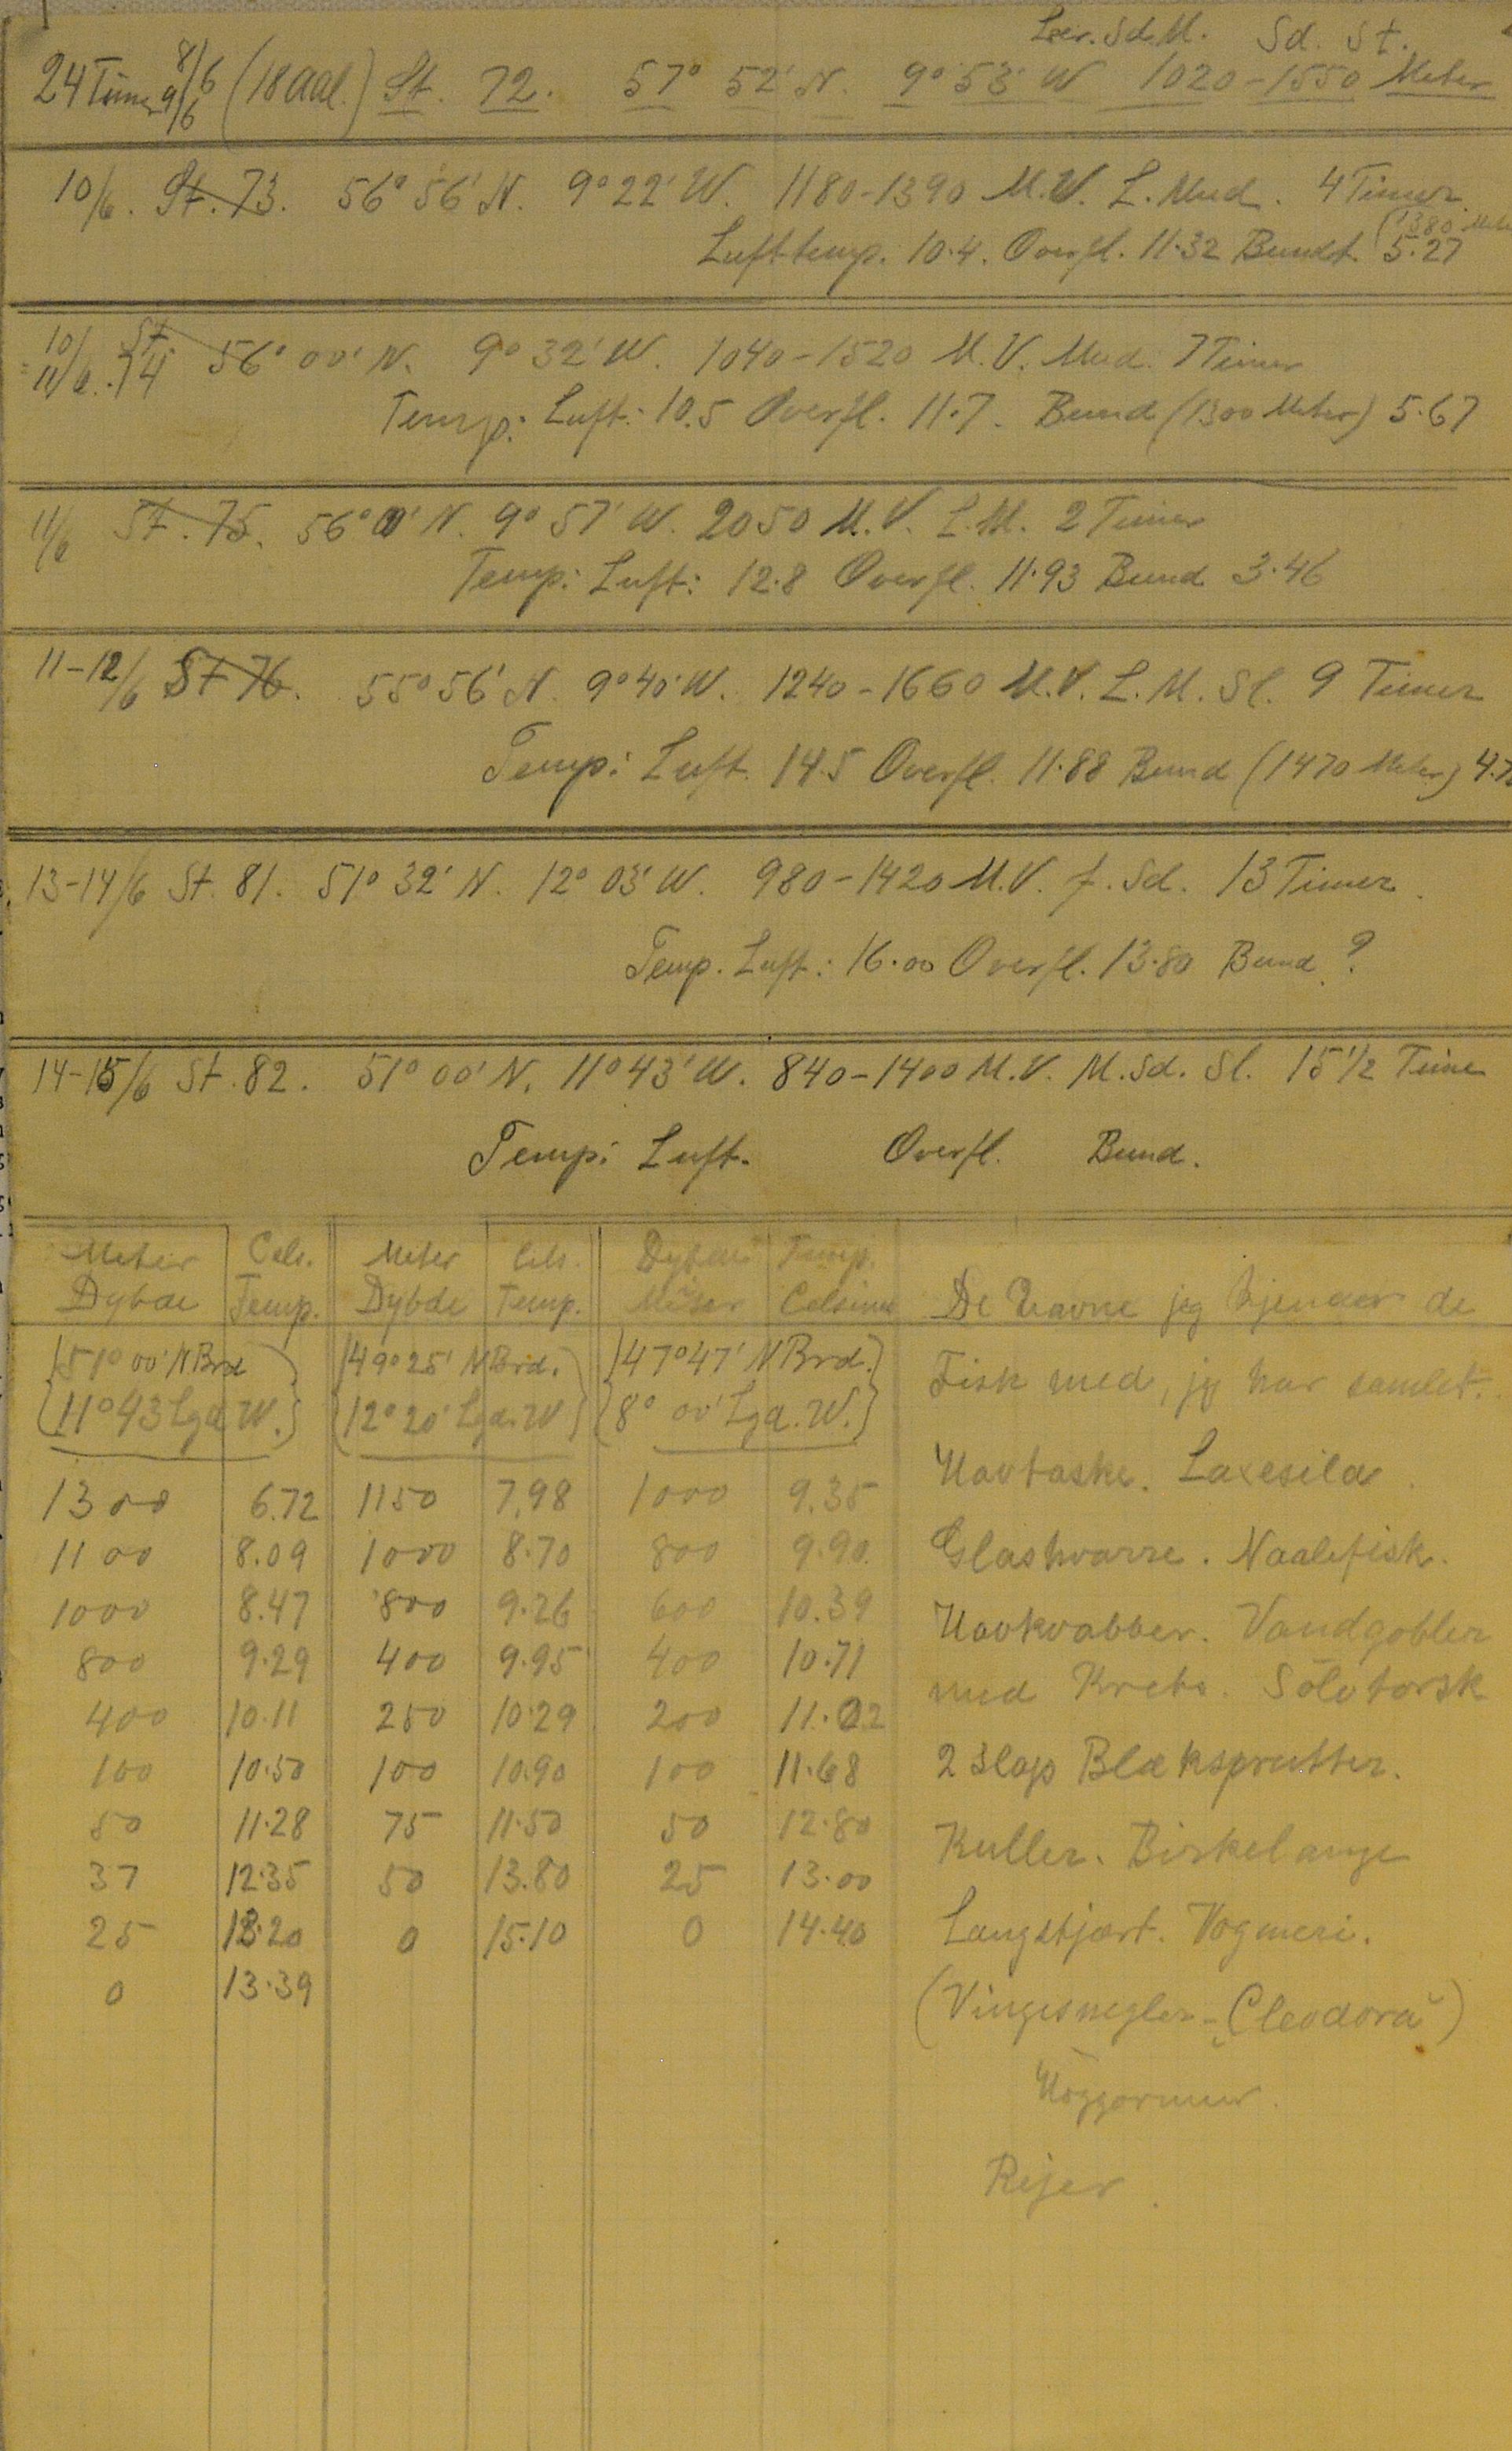 Ler. Sd. M. Sd. St.
24 Timer 8/6 9/6 (18 Aal.) St. 72. 57° 52' N. 9° 53' W 1020-1550 Meter
10/6. St. 73. 56° 56' N. 9° 22' W. 1180-1390 M.V. L. Mud. 4 Timer
(1380 Meter
Lufttemp. 10.4. Overfl. 11.32 Bundt. 5.27
10/ 11/6. St 74 56° 00' N. 9° 32' W. 1040-1520 M.V. Mud. 7 Timer
Temp: Luft: 10.5 Overfl. 11.7. Bund (1300 Meter) 5.67
11/6 St. 75. 56° 00' N. 9° 57' W. 2050 M.V. L.M. 2 Timer
Temp: Luft: 12.8 Overfl. 11.93 Bund 3.46
11-12/6 St 76. 55° 56' N. 9° 40' W. 1240-1660 M.V. L.M. Sl. 9 Timer
Temp: Luft. 14.5 Overfl. 11.88 Bund (1470 Meter) 4.7
13-14/6 St. 81. 51° 32' N. 12° 03' W. 980-1420 M.V. f. Sd. 13 Timer.
Temp. Luft: 16.00 Overfl. 13.80 Bund ?
14-15/6 St. 82. 51° 00' N. 11° 43' W. 840-1400 M.V. M. Sd. Sl. 15 1/2 Time
Temp: Luft. Overfl. Bund.
Meter Cels. Meter Cels. Dybde Temp.
Dybde Temp. Dybde Temp. Meter Celsius De Navne jeg kjender de
51° 00' N Brd 49° 25' N Brd. 47° 47' N Brd. Fisk med, jeg har samlet.
11° 43 Lgd W. 12° 20' Lgd. W 8° 00' Lgd. W.
Havtaske. Laxesild
1300 6.72 1150 7.98 1000 9.35
1100 8.09 1000 8.70 800 9.90 Glashvarre. Naalefisk.
1000 8.47 800 9.26 600 10.39 Havkvabber. Vandgopler
800 9.29 400 9.95 400 10.71 med Krebs. Sölvtorsk
400 10.11 250 10.29 200 11.02
100 10.50 100 10.90 100 11.68 2 Slags Blæksprutter.
50 11.28 75 11.50 50 12.80 Kuller. Birkelange
37 12.35 50 13.80 25 13.00
25 13.20 0 15.10 0 14.40 Langstjært. Vogmeri.
0 13.39
(Vingesnegler - "Cleodora")
Höggormur.
Rejer.